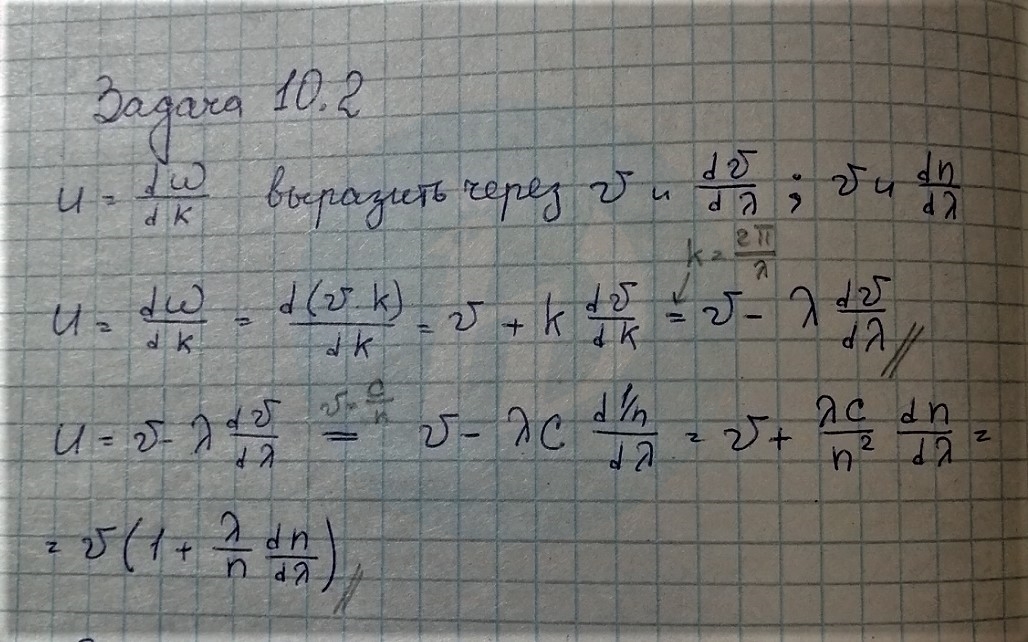 Задача 10.2
u = dω/dk выразить через v и dv/dλ ; v и dn/dλ
k = 2π/λ
u = dω/dk = d(v k)/dk = v + k dv/dk = v - λ dv/dλ //
u = v - λ dv/dλ = v - λc d1/n/dλ = v + λc/n² dn/dλ =
v = c/n
= v (1 + λ/n dn/dλ) //